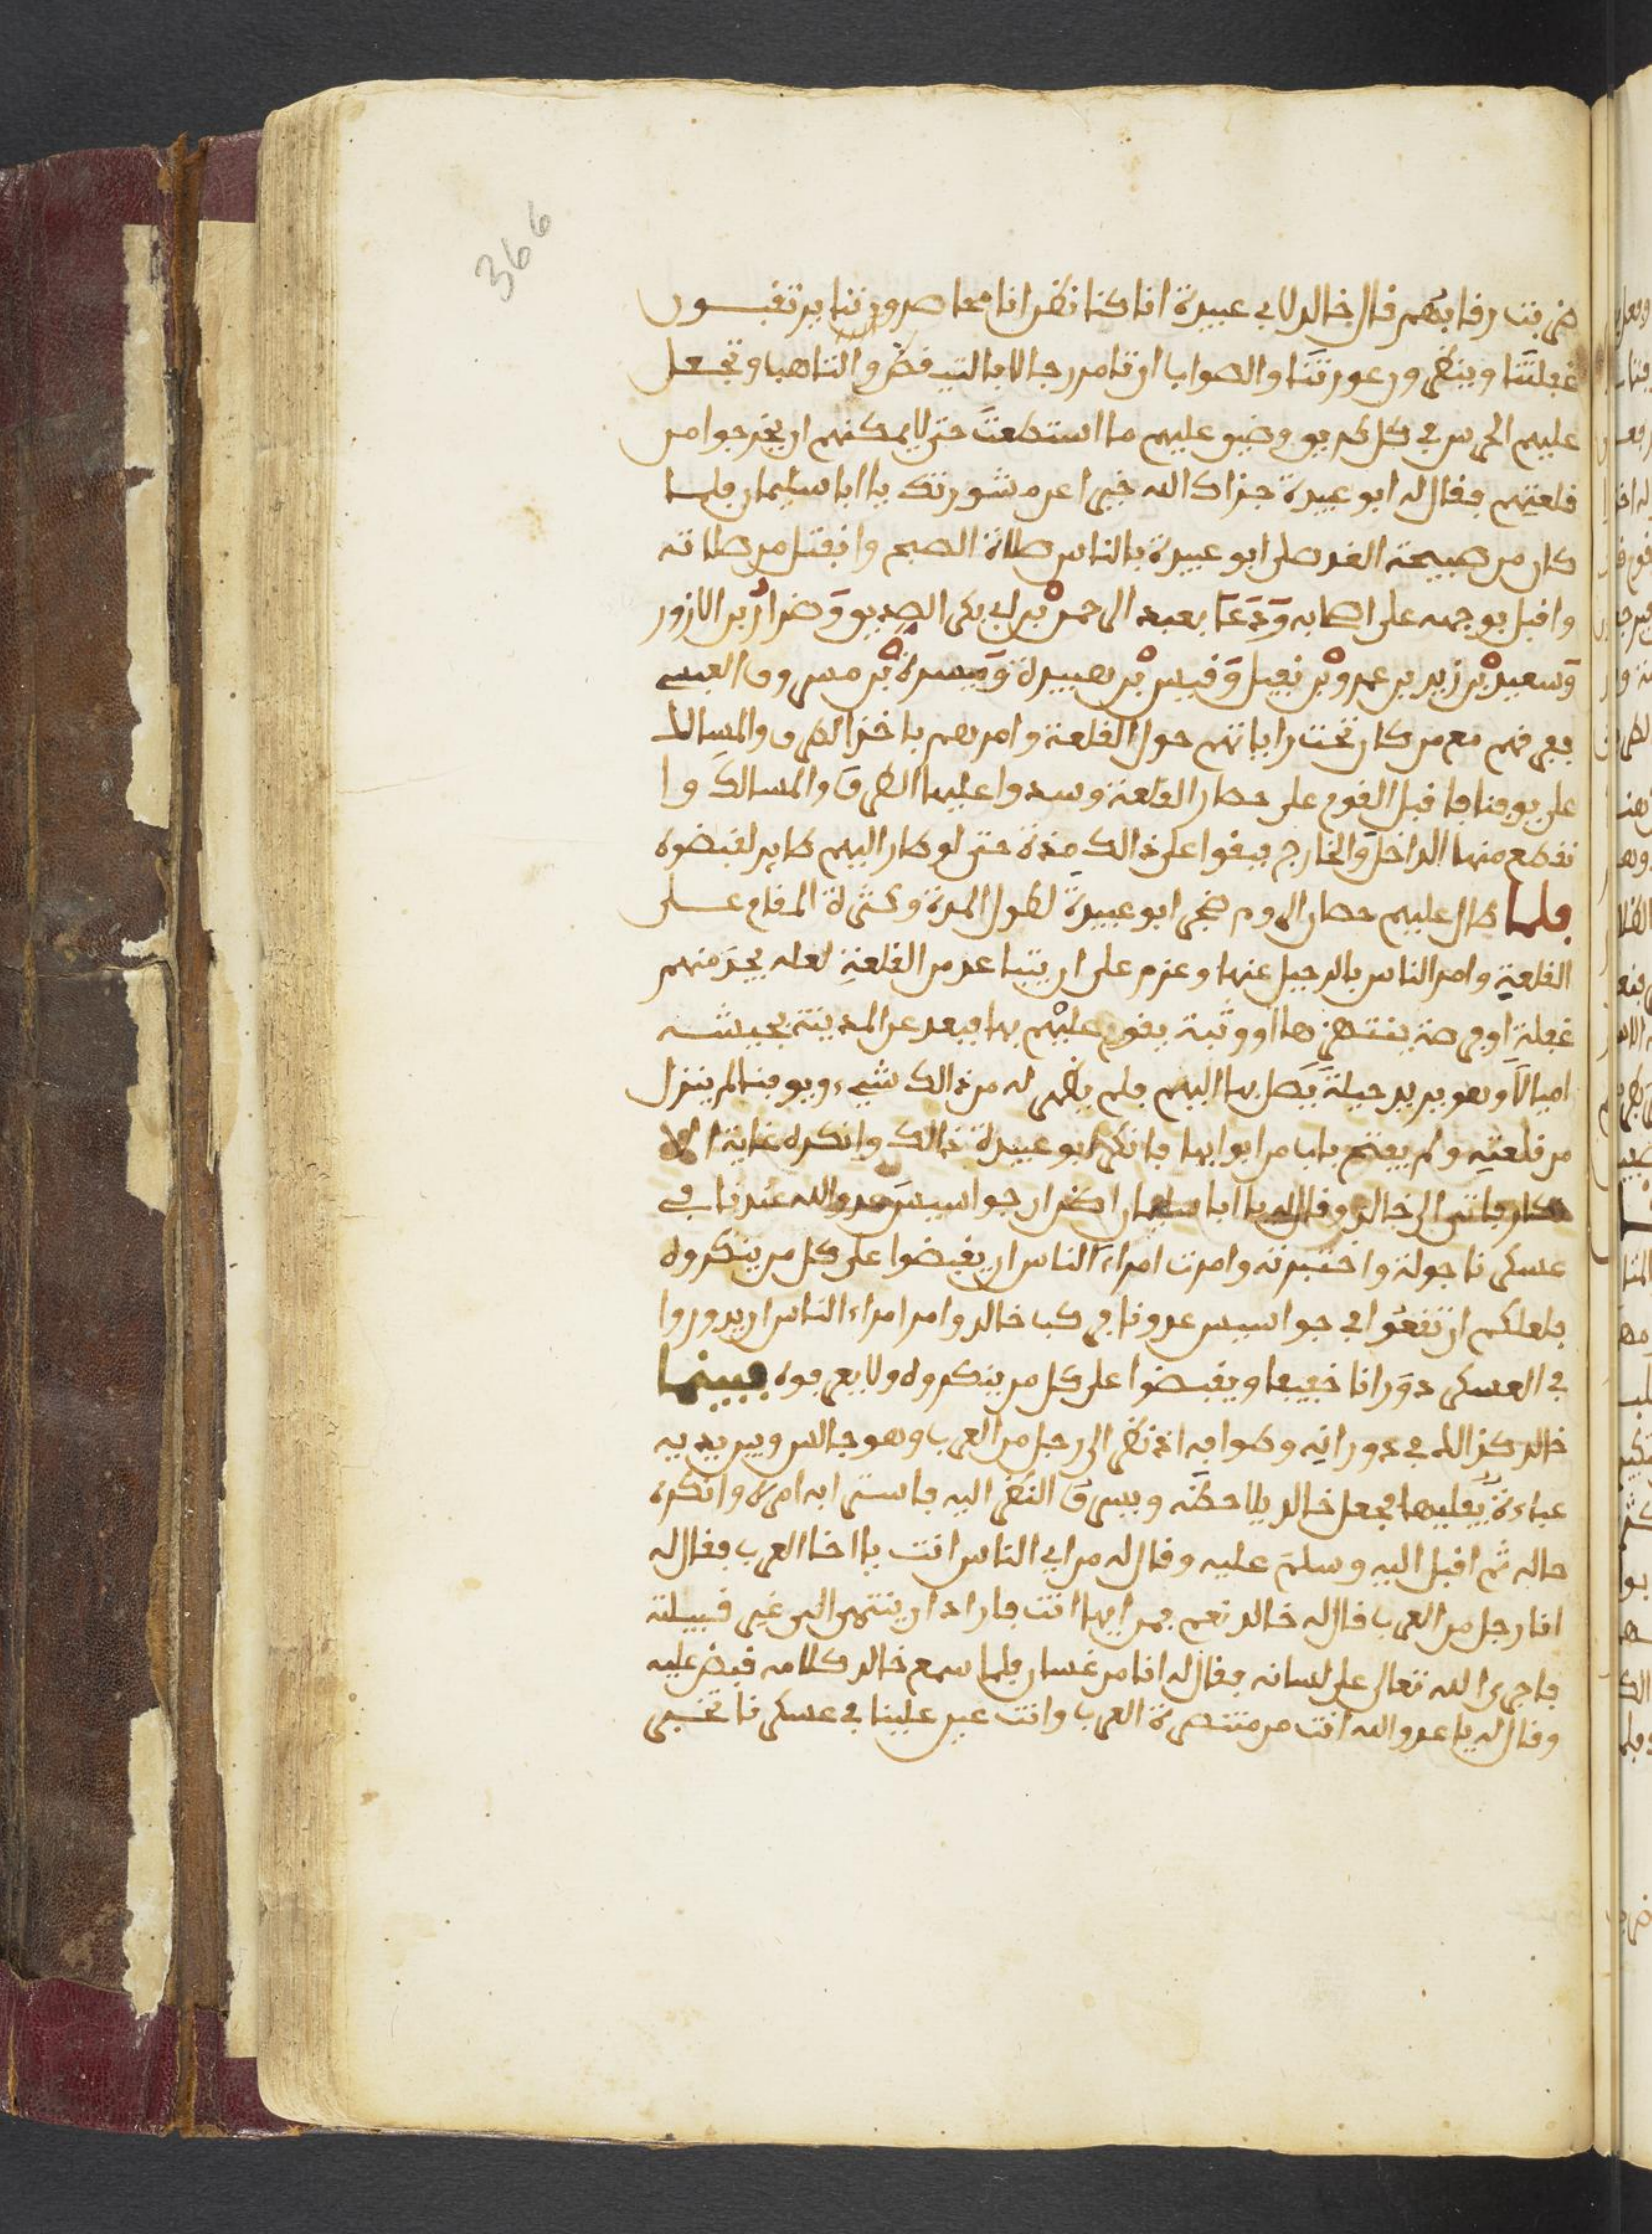 366
ضربت رقابهم قال خالد لابي عبيدة انا كنا نظن انا محاصرون لنا يرتقبون
غفلتنا وينظرون عورتنا والصواب ان تامر رجالا بالتيقظ والتاهب وتجعل
عليهم الحرس في كل طريق وضيق عليهم ما استطعت حتى لا يمكنهم ان يخرجوا من
قلعتهم فقال له ابو عبيدة جزاك الله خيرا عن مشورتك يا ابا سليمان فلما
كان من صبيحة الغد صلى ابو عبيدة بالناس صلاة الصبح وانفتل من صلاته
واقبل بوجهه على اصحابه وَدَعَا بعبد الرحمن بْن ابي بكر الصديق وَضرار بن الازور
وَسعيد بْن زيد بن عمرو بْن نفيل وَقيس بْن هبيرة وَميسرة بْن مسروق العبسي
ففرقهم مع من كان تحت راياتهم حول القلعة وامرهم باخذ الطرق والمسالك
على يوقنا فاقبل القوم على حصار القلعة وسدوا عليها الطرقَ والمسالكَ وا
نقطع منها الداخل وَالخارج فبقوا على ذالك مدة حتى لو طار اليهم طاير لقبضوه
فلما طال عليهم حصار الروم ضجر ابو عبيدة لطول المدة وكثرة المقام على
القلعة وامر الناس بالرحيل عنها وعزم على ان يتباعد من القلعةِ لعله يجدَ منهم
غفلة او فرصة ينتهزها او وثبة يقوم عليْهم بها فبعد عن المدينة بجيشه
اميالاً وهو يريد حيلةً يَصل بها اليهم فلم يظهر له من ذالك شيء ويوقنا لم ينزل
من قلعتِه ولم يفتح باب من ابوابها فانكر ابو عبيدة ذالك وانكره غاية الا
نكار فاتى الى خالد وقال له يا ابا سليمان اظن ان جواسيسَ عدو الله عندنا في
عسكرنا جولة واختبرته وامرت امراء الناس ان يقبضوا على كل من ينكروه
فلعلكم ان تقعوا في جواسيس عدونا فركب خالد وامر امراء الناس ان يدوروا
في العسكر دوَرانا خفيفا ويقبضوا على كل من ينكروه ولا يعرفوه فبينما
خالد كذالك في دورانِه وطوافه اذ نظر الى رجل من العرب وهو جالس وبين يديه
عباءة يُقلبها فجعل خالد يلاحظه ويسرقَ النظر اليه فاسترابه امره وانكره
حاله ثم اقبل اليه وسلمَ عليه وقال له من اي الناس انت يا اخا العرب فقال له
انا رجل من العرب قال له خالد نعم فمن ايها انت فاراد ان ينتهى الى غير قبيلته
فاجرى الله تعالى على لسانه فقال له انا من غسان فلما سمع خالد كلامه قبض عليه
وقال له يا عدو الله انت من متنصرة العرب وانت عين علينا في عسكرنا تخبر